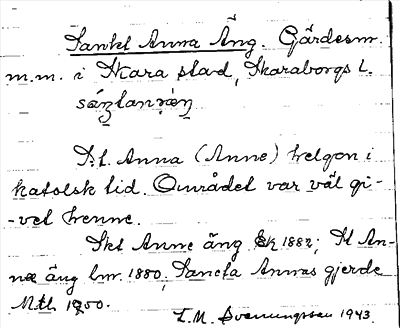 Sankt Anna Äng. Gärdesnr.
m.m. i Skara stad, Skaraborgs l.
S:t. Anna (Anne) helgon i
katolsk tid. Området var väl gi-
-vet henne.
Skt Anne äng Ek 1882; St An-
næ äng lmr. 1880, Sancta Annas gjerde
Mtl 1950.
L.M. Svenungsson 1943.